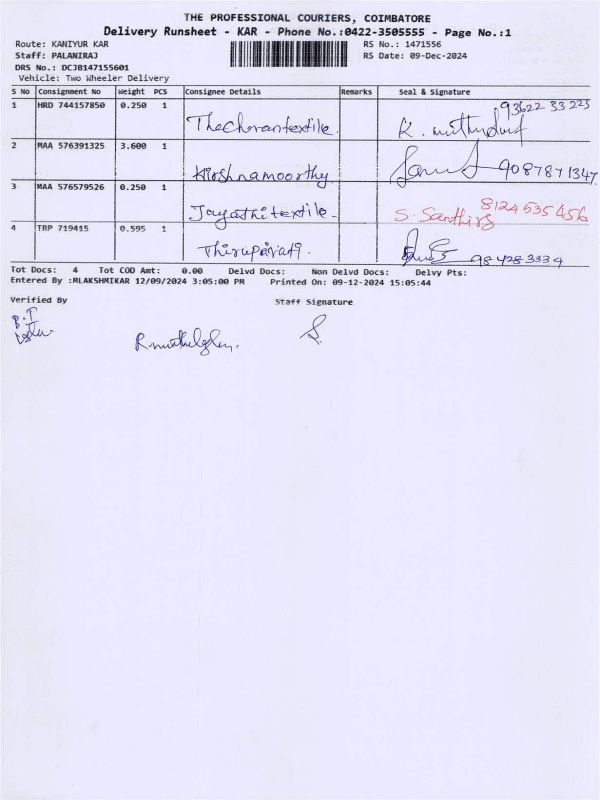 THE PROFESSIONAL COURIERS, COIMBATORE
Delivery Runsheet - KAR - Phone No.:0422-3505555 - Page No.:1
Route: KANIYUR KAR RS No.: 1471556
Staff: PALANIRAJ RS Date: 09-Dec-2024
DRS No.: DCJB147155601
Vehicle: Two Wheeler Delivery
S No Consignment No Weight PCS Consignee Details Remarks Seal & Signature
1 HRD 744157850 0.250 1 Thechrantextile. 93622 33 225
K.
2 MAA 576391325 3.600 1 Kirshnamoorthy 9087871347.
3 MAA 576579526 0.250 1 Jayathitextile- S. Santhi 8124535456
4 TRP 719415 0.595 1 Thirupavati. 984283334
Tot Docs: 4 Tot COD Amt: 0.00 Delvd Docs: Non Delvd Docs: Delvy Pts:
Entered By :MLAKSHMIKAR 12/09/2024 3:05:00 PM Printed On: 09-12-2024 15:05:44
Verified By Staff Signature